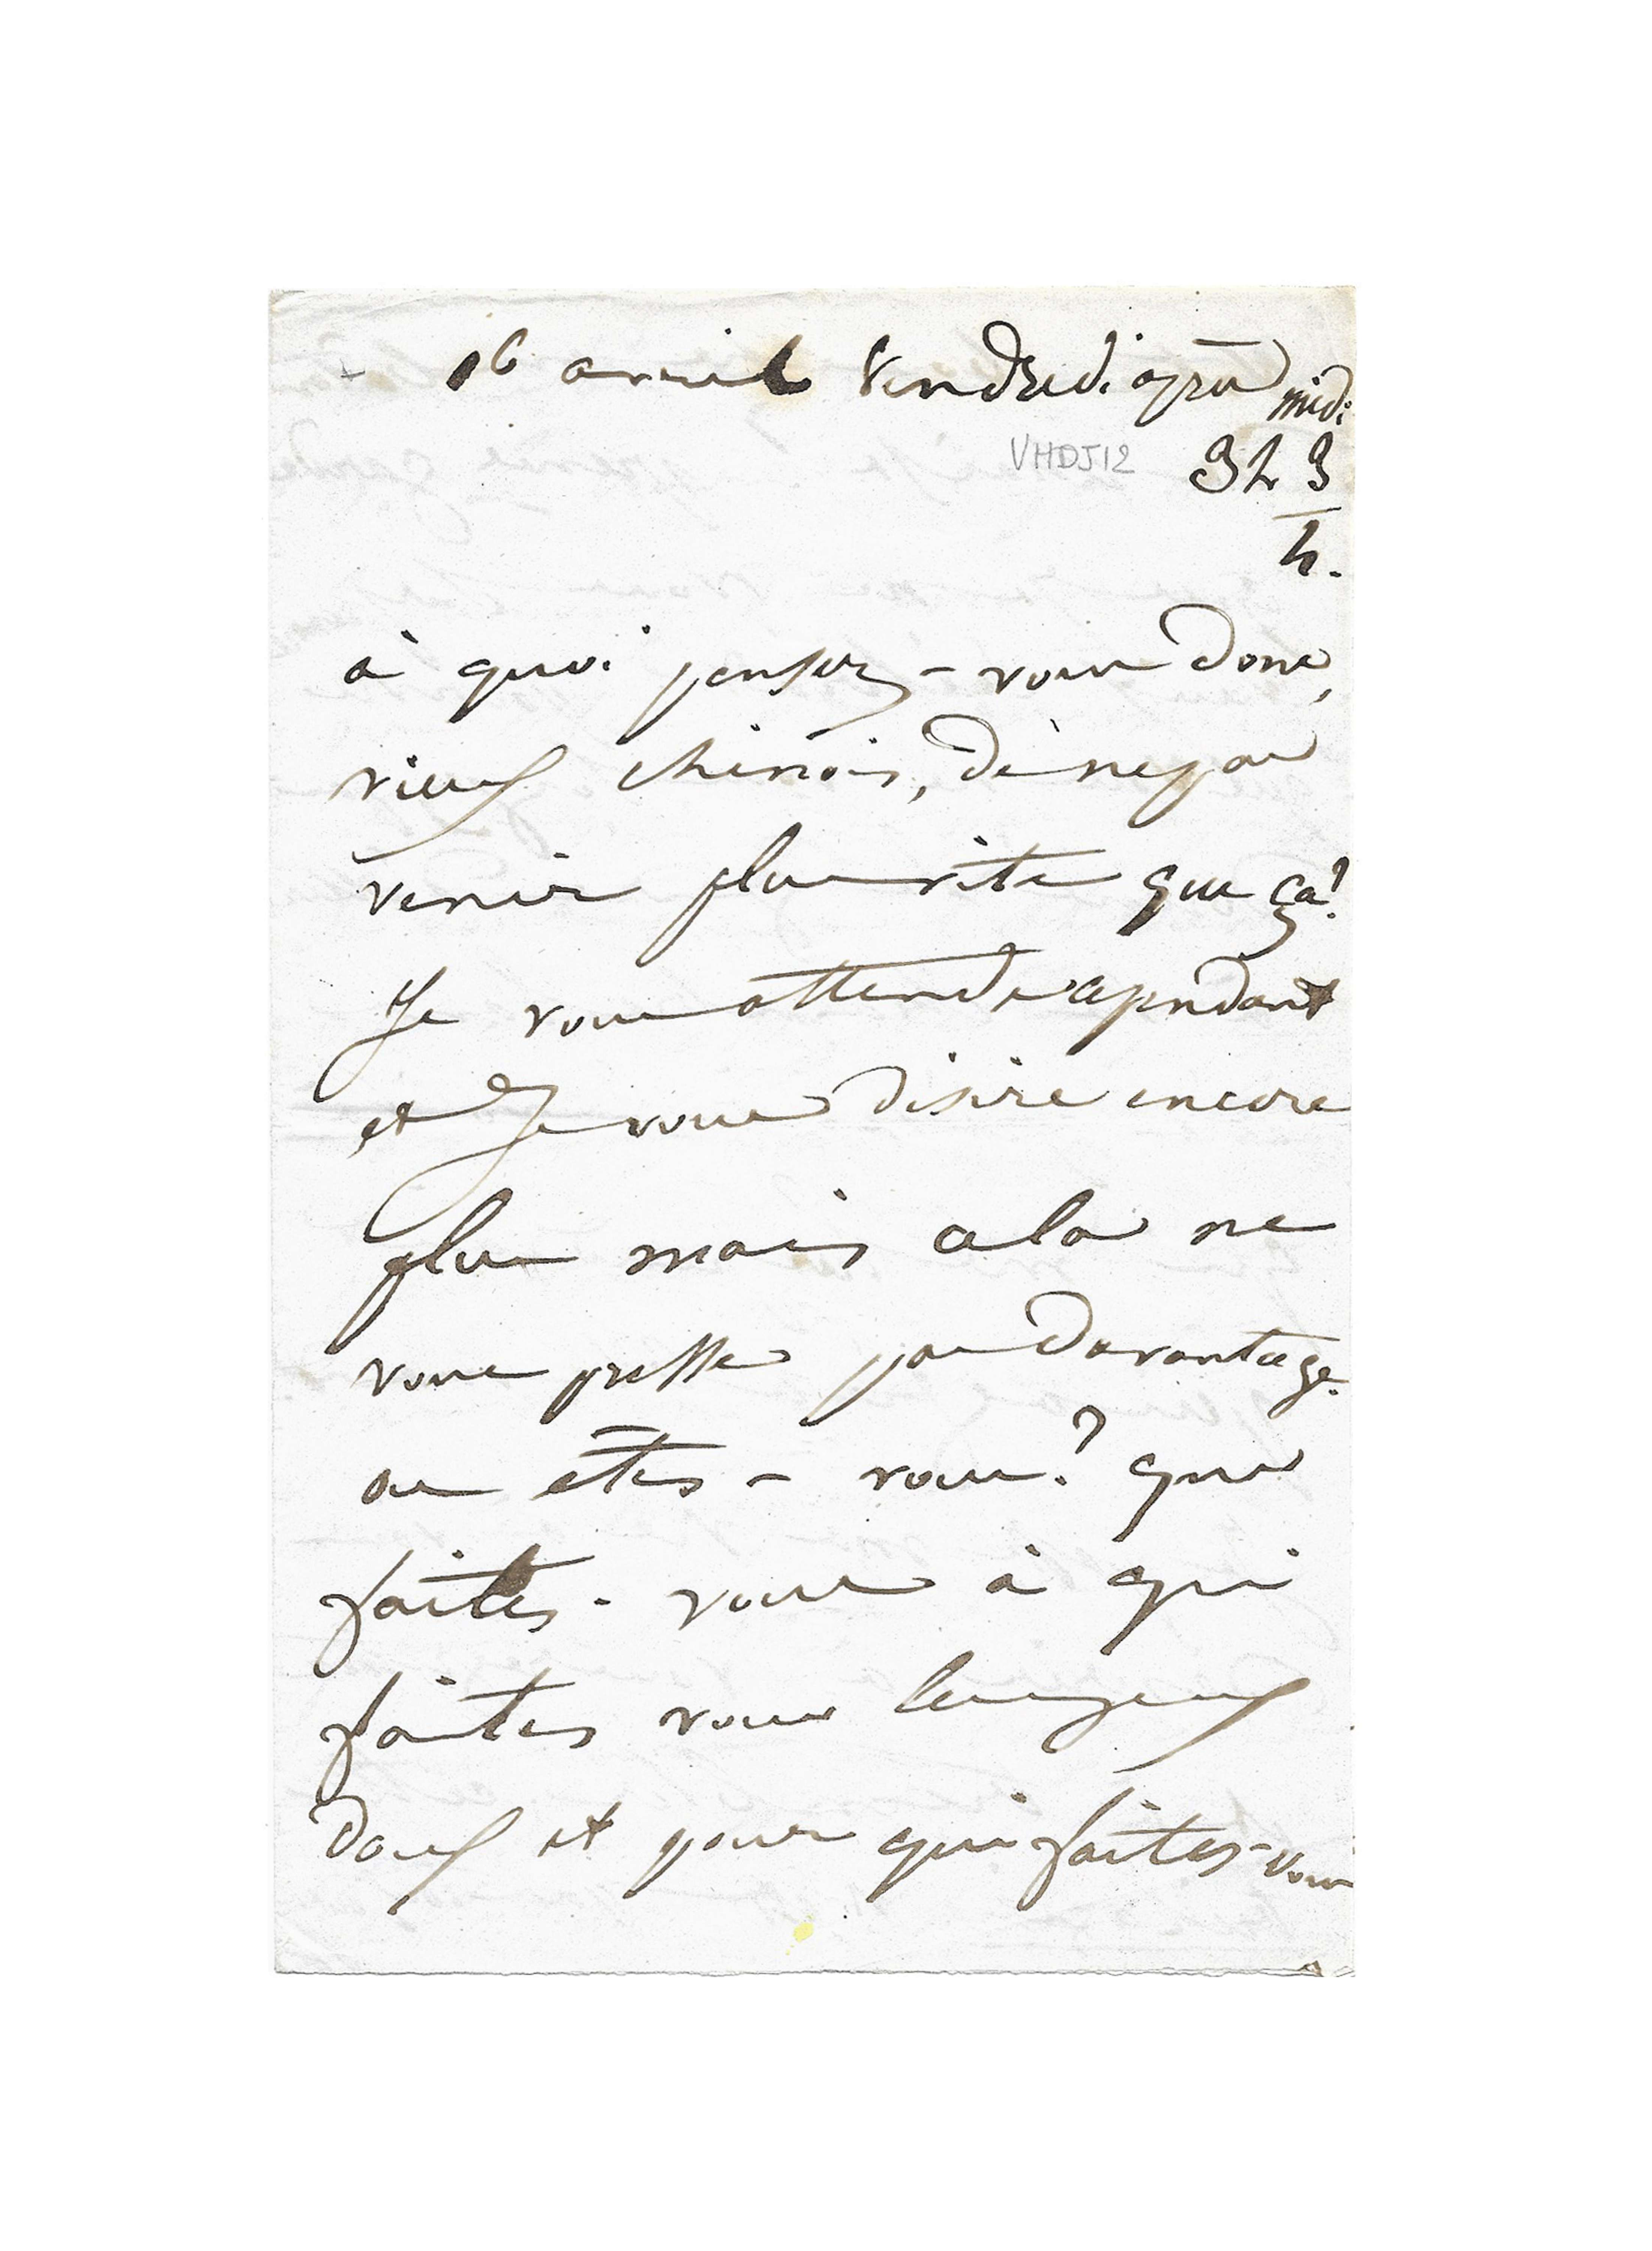 16 avril Vendredi après midi
VHDJ12 3 h 3
4.
à quoi pensez-vous donc,
vieux chinois, de ne pas
venir plus vite que ça?
Je vous attends cependant
et Je vous désire encore
plus mais cela ne
vous presse pas davantage.
où êtes-vous? que
faites-vous à qui
faites vous les yeux
doux et pour qui faites-vous